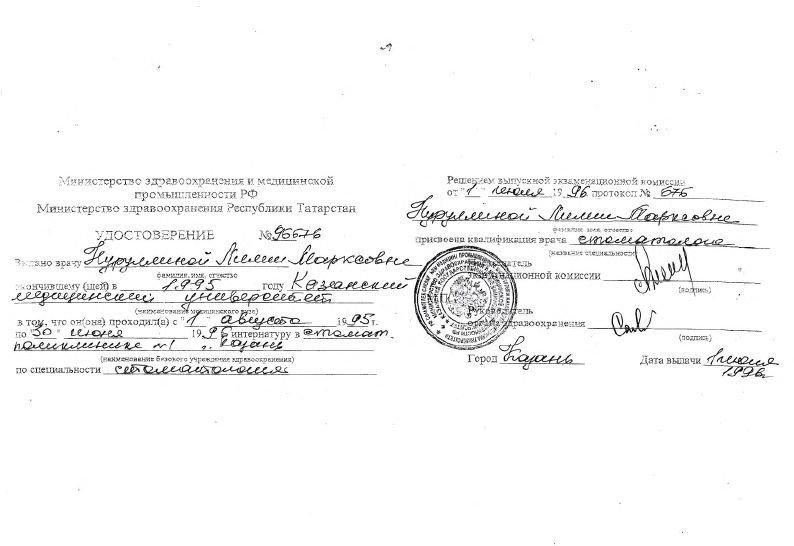 Министерство здравоохранения и медицинской
промышленности РФ
Министерство здравоохранения Республики Татарстан
УДОСТОВЕРЕНИЕ №96676
Выдано врачу Нуруллиной Лилии Марксовне
фамилия, имя, отчество
окончившему (шей) в 1995 году Казанский
медицинский университет
(наименование медицинского вуза)
в том, что он(она) проходил(а) с "1" августа 1995г.
по "30" июня 1996 интернатуру в стомат.
поликлинике №1 г. Казань
(наименование базового учреждение здравоохранения)
по специальности стоматология
Решением выпускной экзаменационной комиссии
от "1" июля 1996 протокол № 676
Нуруллиной Лилии Марксовне
фамилия имя отчество
присвоена квалификация врача стоматолога
(название специальности)
экзаменационной комиссии
(подпись)
Руководитель
органа здравоохранения
(подпись)
Город Казань Дата выдачи 1 июля
1996г